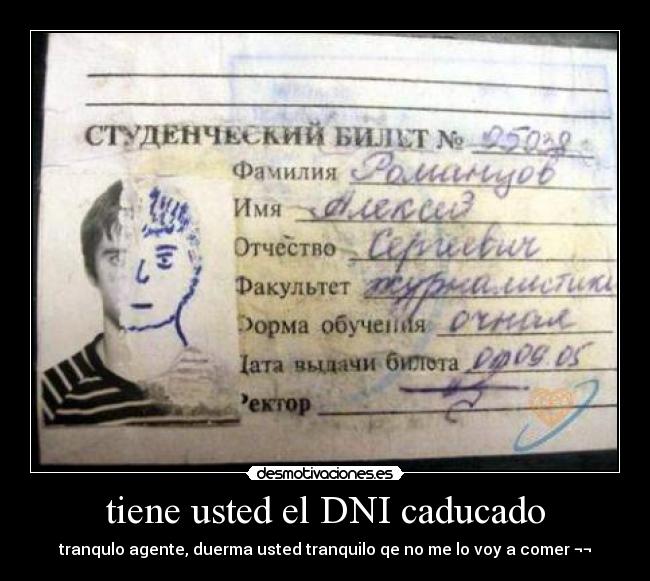 СТУДЕНЧЕСКИЙ БИЛЕТ № 25038
Фамилия Романцов
Имя Алексей
Отчество Сергеевич
Факультет журналистики
Форма обучения очная
Дата выдачи билета 09.05
Ректор
desmotivaciones.es
tiene usted el DNI caducado
tranqulo agente, duerma usted tranquilo qe no me lo voy a comer ¬¬